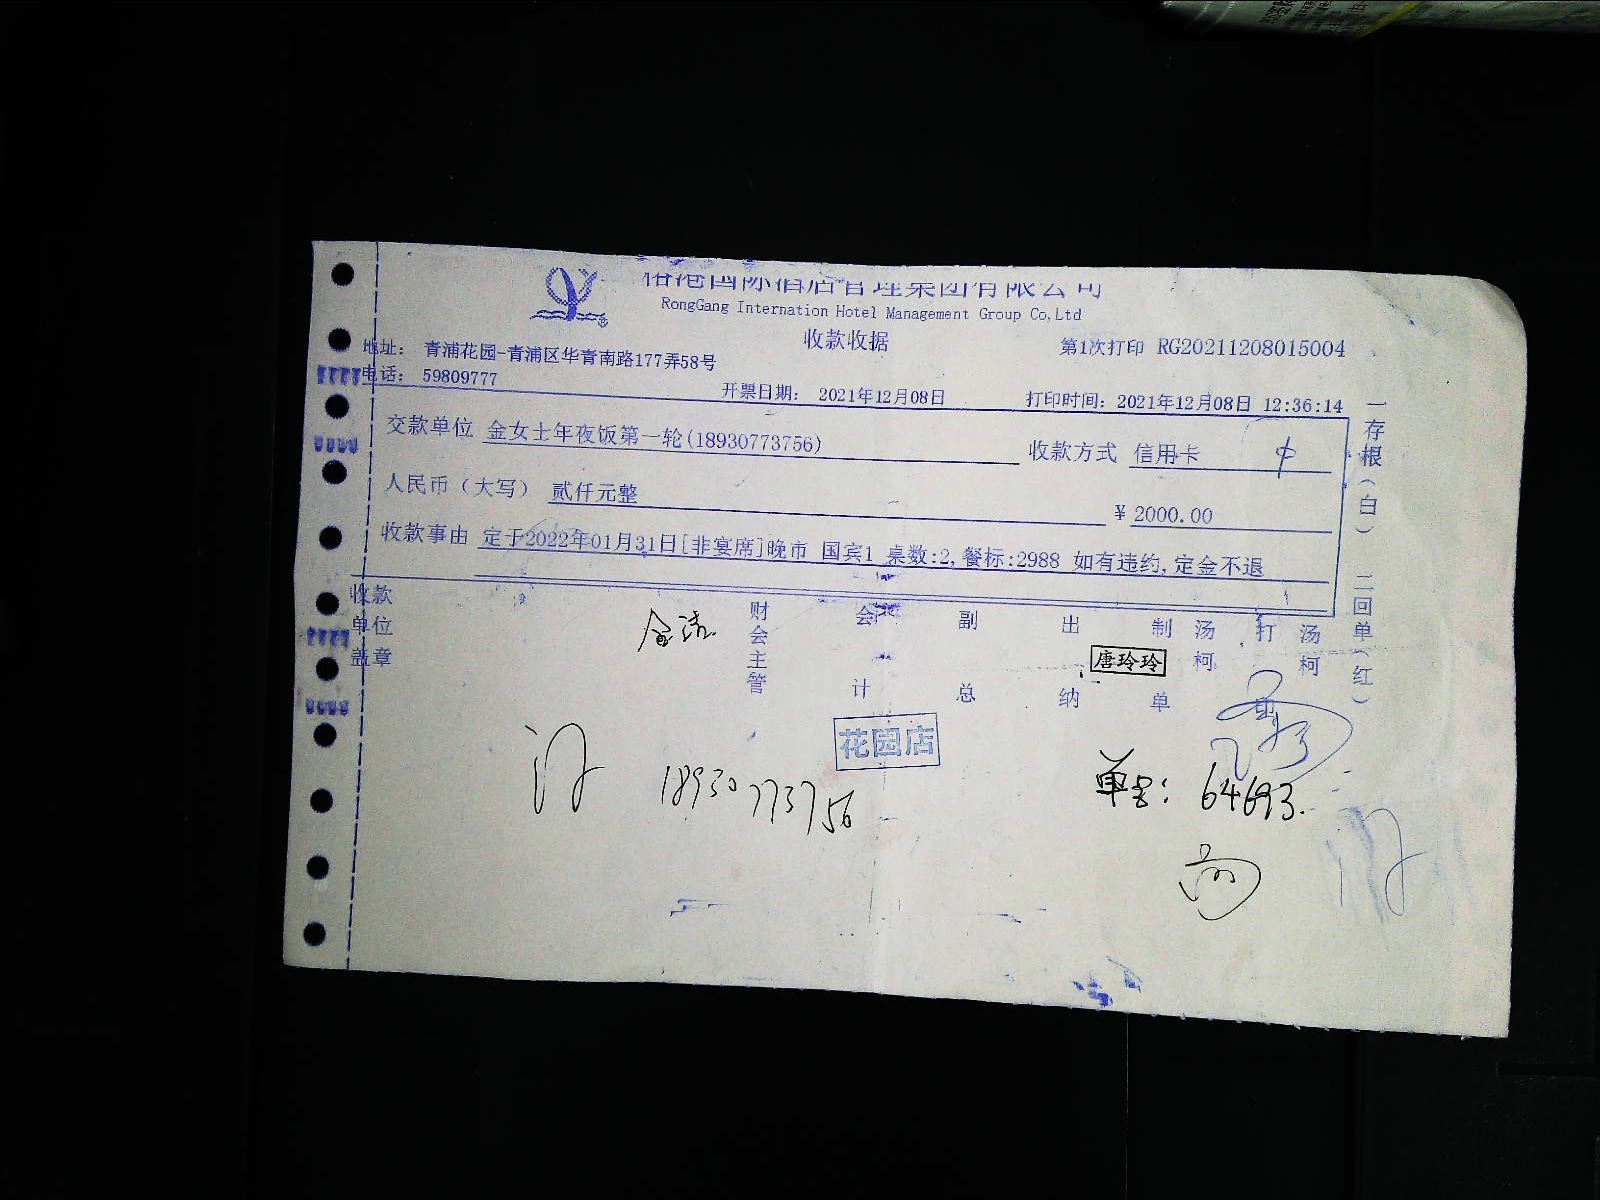 港国际酒店管理集团有限公司
RongGang Internation Hotel Management Group Co,Ltd
收款收据
第1次打印 RG20211208015004
地址: 青浦花园-青浦区华青南路177弄58号
电话: 59809777
开票日期: 2021年12月08日
打印时间: 2021年12月08日 12:36:14
交款单位 金女士年夜饭第一轮(18930773756)
收款方式 信用卡
人民币(大写) 贰仟元整
¥ 2000.00
收款事由 定于2022年01月31日[非宴席]晚市 国宾1 桌数:2,餐标:2988 如有违约,定金不退
一存根(白) 二回单(红)
收款单位盖章
财会主管
会计
副总
出纳
唐玲玲
制单
汤柯
打
汤柯
花园店
18930773756
单号: 64693.